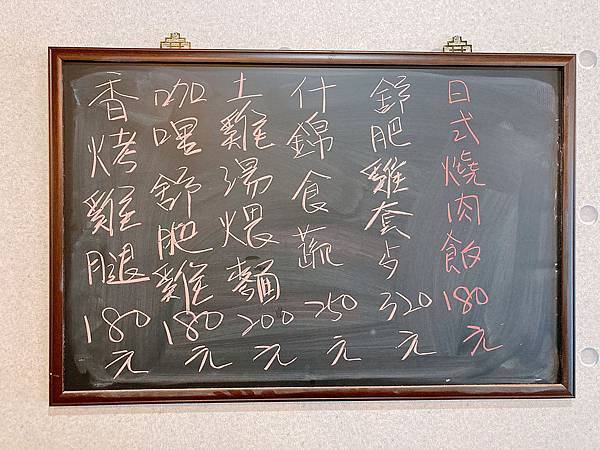 日式燒肉飯180元
舒肥雞套歺320元
什錦食蔬250元
土雞湯煨麵200元
咖哩舒肥雞180元
香烤雞腿180元